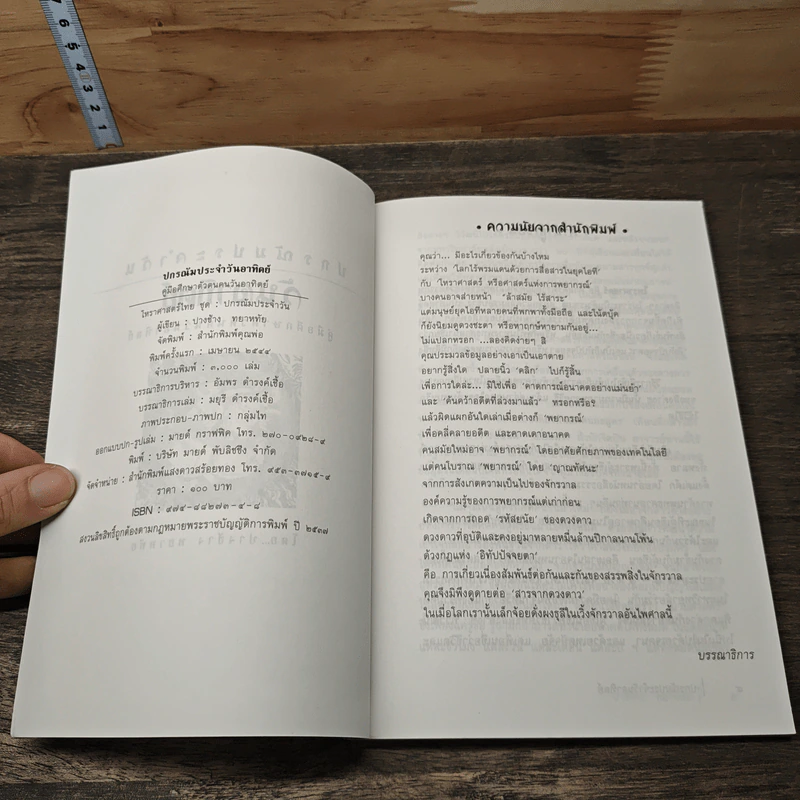 7 6 5 4 3 2 1
ปกรณัมประจำวันอาทิตย์
คู่มือศึกษาตัวตนคนวันอาทิตย์
โหราศาสตร์ไทย ชุด : ปกรณัมประจำวัน
ผู้เขียน : ปางช้าง ทยาหทัย
จัดพิมพ์ : สำนักพิมพ์คุณพ่อ
พิมพ์ครั้งแรก : เมษายน ๒๕๔๔
จำนวนพิมพ์ : ๓,๐๐๐ เล่ม
บรรณาธิการบริหาร : อัมพร ดำรงค์เชื้อ
บรรณาธิการเล่ม : มยุรี ดำรงค์เชื้อ
ภาพประกอบ-ภาพปก : กลุ่มไท
ออกแบบปก-รูปเล่ม : มายด์ กราฟฟิค โทร. ๒๗๐-๐๙๒๘-๙
พิมพ์ : บริษัท มายด์ พับลิชชิ่ง จำกัด
จัดจำหน่าย : สำนักพิมพ์แสงดาวสร้อยทอง โทร. ๙๕๓-๓๗๑๕-๙
ราคา : ๑๐๐ บาท
ISBN : ๙๗๔-๘๘๒๗๓-๔-๘
สงวนลิขสิทธิ์ถูกต้องตามกฎหมายพระราชบัญญัติการพิมพ์ ปี ๒๕๓๗
• ความนัยจากสำนักพิมพ์ •
คุณว่า... มีอะไรเกี่ยวข้องกันบ้างไหม
ระหว่าง 'โลกไร้พรมแดนด้วยการสื่อสารในยุคไอที'
กับ 'โหราศาสตร์ หรือศาสตร์แห่งการพยากรณ์'
บางคนอาจส่ายหน้า "ล้าสมัย ไร้สาระ"
แต่มนุษย์ยุคไอทีหลายคนที่พกพาทั้งมือถือ และโน้ตบุ๊ค
ก็ยังนิยมดูดวงชะตา หรือหาฤกษ์หายามกันอยู่...
ไม่แปลกหรอก ...ลองคิดง่ายๆ สิ
คุณประมวลข้อมูลอย่างเอาเป็นเอาตาย
อยากรู้สิ่งใด ปลายนิ้ว 'คลิก' ไปก็รู้สิ้น
เพื่อการใดล่ะ... มิใช่เพื่อ 'คาดการณ์อนาคตอย่างแม่นยำ'
และ 'ค้นคว้าอดีตที่ล่วงมาแล้ว' หรอกหรือ?
แล้วผิดแผกอันใดเล่าเมื่อต่างก็ 'พยากรณ์'
เพื่อคลี่คลายอดีต และคาดเดาอนาคต
คนสมัยใหม่อาจ 'พยากรณ์' โดยอาศัยศักยภาพของเทคโนโลยี
แต่คนโบราณ 'พยากรณ์' โดย 'ญาณทัศนะ'
จากการสังเกตความเป็นไปของจักรวาล
องค์ความรู้ของการพยากรณ์แต่เก่าก่อน
เกิดจากการถอด 'รหัสยนัย' ของดวงดาว
ดวงดาวที่อุบัติและคงอยู่มาหลายหมื่นล้านปีกาลนานโพ้น
ด้วยกฎแห่ง 'อิทัปปัจจยตา'
คือ การเกี่ยวเนื่องสัมพันธ์ต่อกันและกันของสรรพสิ่งในจักรวาล
คุณจึงมิพึงดูดายต่อ 'สารจากดวงดาว'
ในเมื่อโลกเรานั้นเล็กจ้อยดั่งผงธุลีในเวิ้งจักรวาลอันไพศาลนี้
บรรณาธิการ